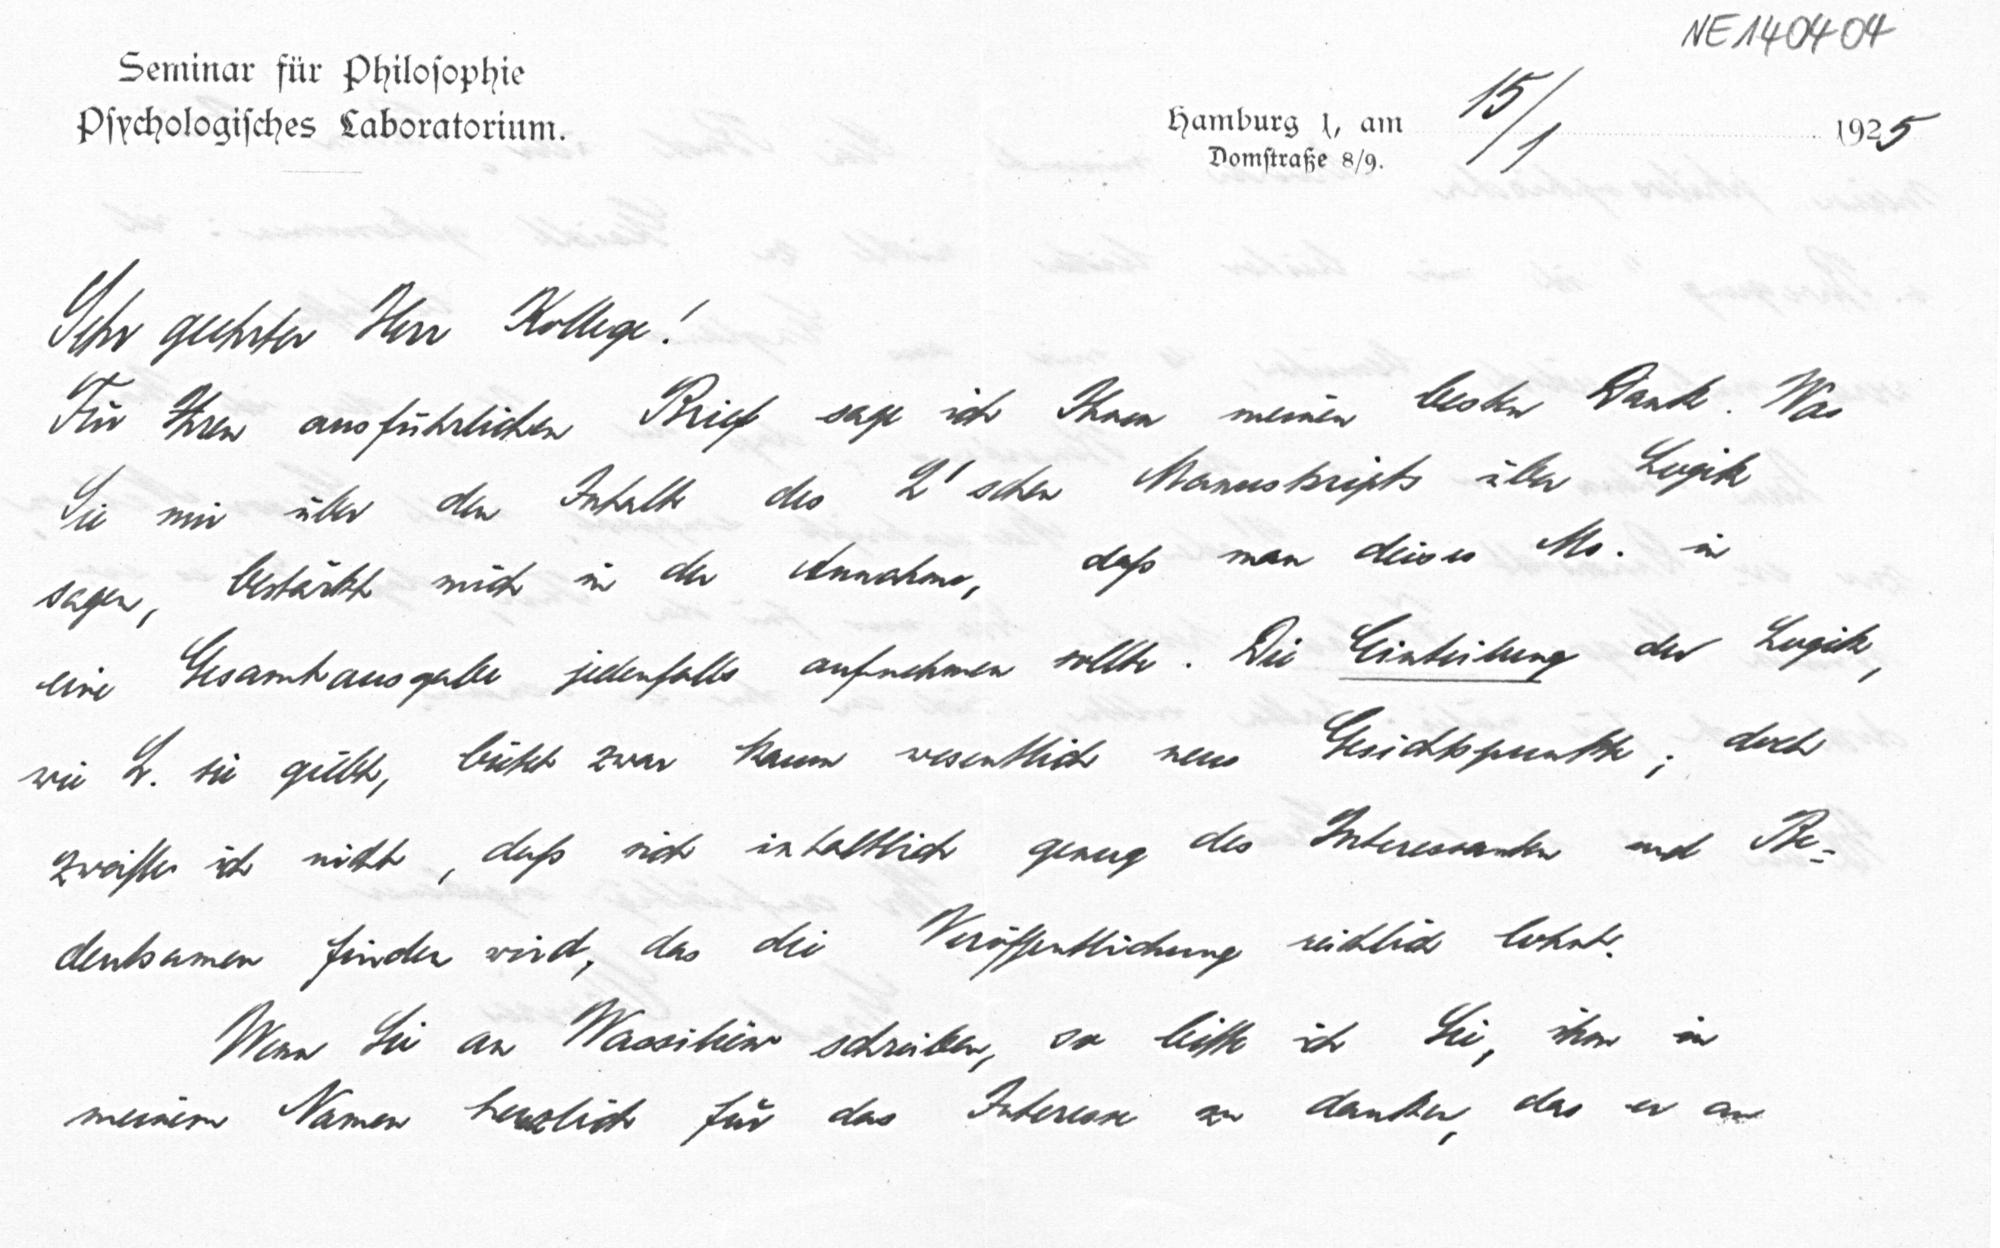 NE140404
Seminar für Philosophie
Psychologisches Laboratorium.
Hamburg 1, am 15/1 1925
Domstraße 8/9.
Sehr geehrter Herr Kollege!
Für Ihren ausführlichen Brief sage ich Ihnen meinen besten Dank. Was
Sie mir über den Inhalt des L'schen Manuskripts über Logik
sagen, bestärkt mich in der Annahme, daß man dieses Ms. in
eine Gesamtausgabe jedenfalls aufnehmen sollte. Die Einteilung der Logik,
wie L. sie giebt, bietet zwar kaum wesentlich neue Gesichtspunkte; doch
zweifle ich nicht, daß sich inhaltlich genug des Interessanten und Be-
deutsamen finden wird, das die Veröffentlichung reichlich lohnt.
Wenn Sie an Wassiliew schreiben, so bitte ich Sie, ihm in
meinem Namen herzlich für das Interesse zu danken, das er an